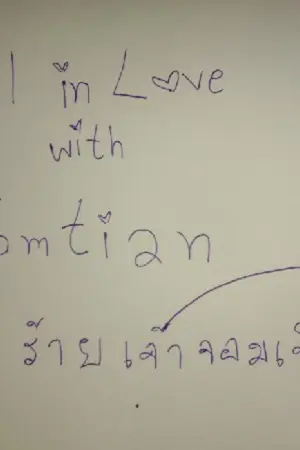 in Love
with
omtian
ร้ายเจ้าจอมเจ้